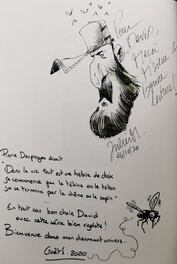 Pour
David,
Julien M.
Pierre Desproges disait
"Dans la vie tout est une histoire de choix
ça commence par la tétine ou le téton
ça se termine par le chêne ou le sapin"...
En tout cas bon choix David
avec cette série bien rigolote!
Bienvenue dans mon charmant univers...
2020